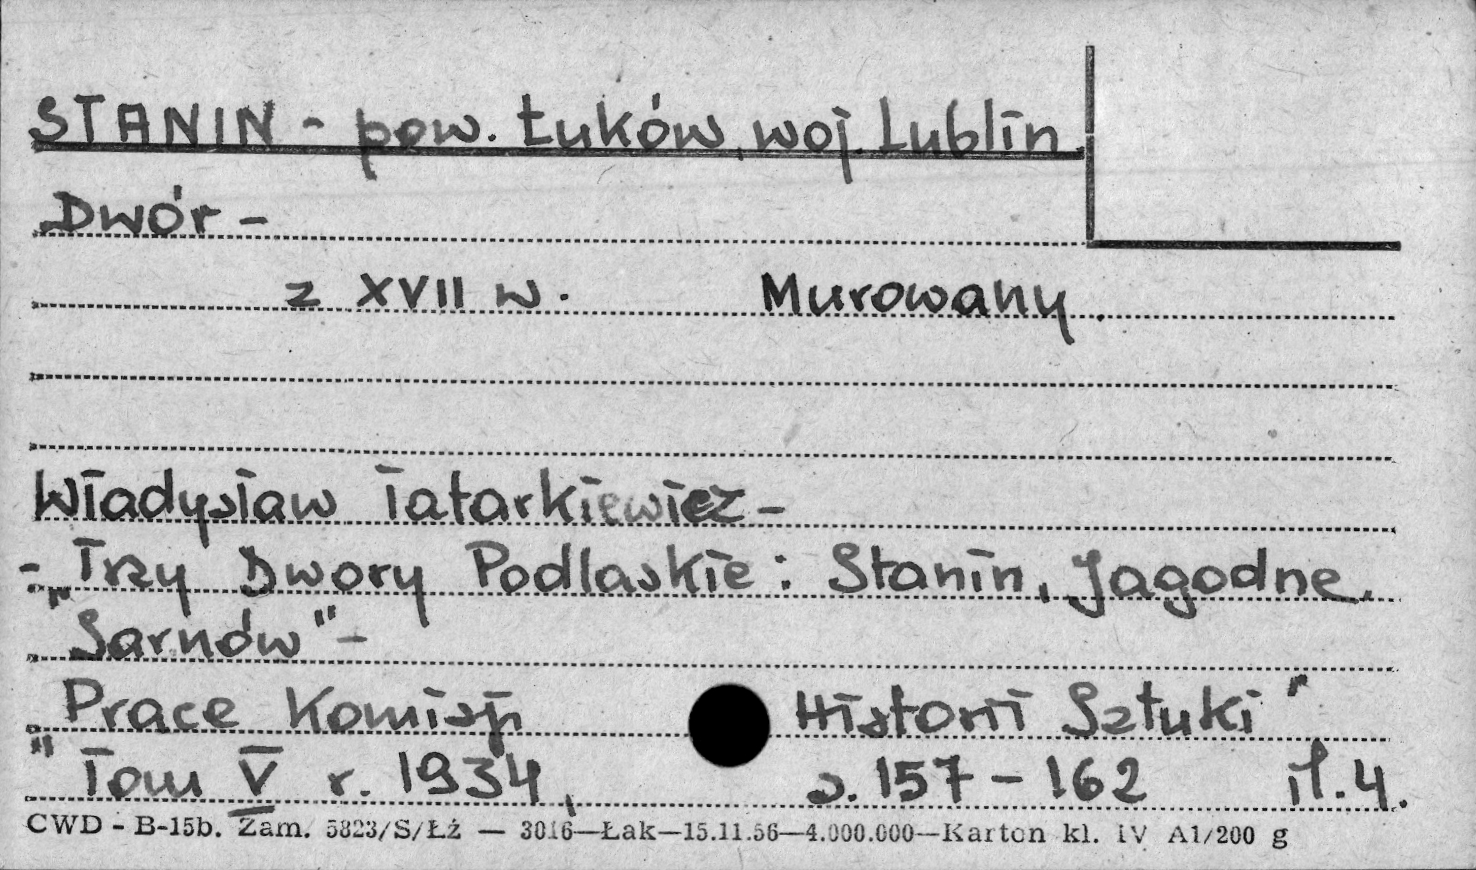 STANIN - pow. Łuków, woj. Lublin.
Dwór -
z XVII w. Murowany.
Władysław Tatarkiewicz -
- „Trzy Dwory Podlaskie: Stanin, Jagodne.
Sarnów" -
„Prace Komisji Historii Sztuki"
Tom V r. 1934, s. 157 - 162 ił. 4.
CWD - B-15b. Zam. 5823/S/Łż — 3016—Łak—15.11.56—4.000.000—Karton kl. IV A1/200 g